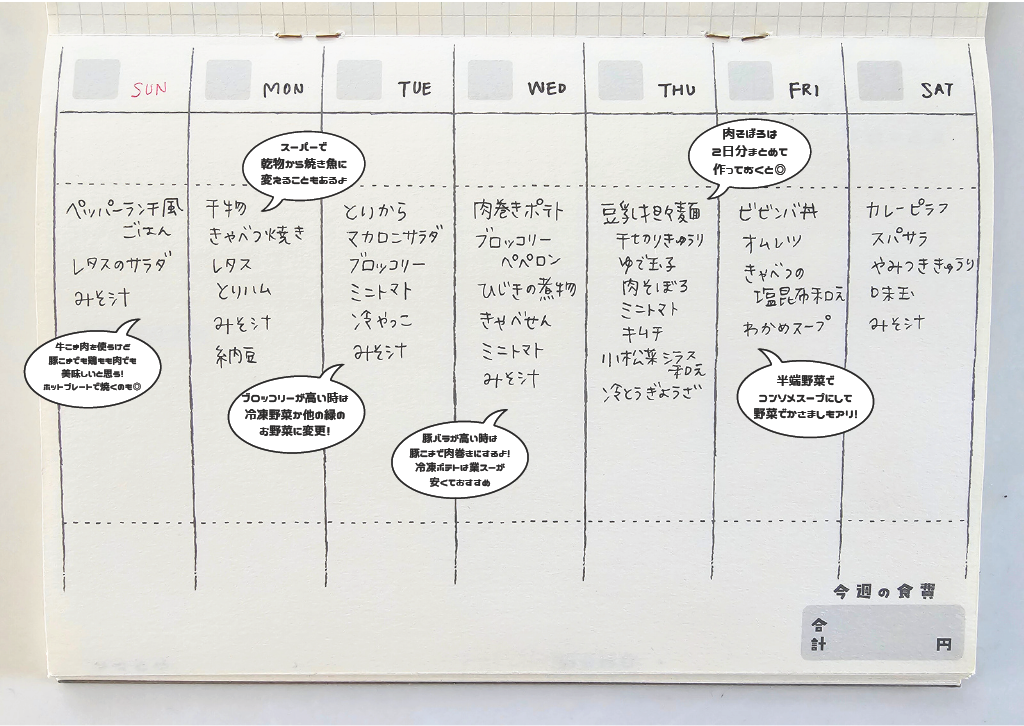 SUN
MON
TUE
WED
THU
FRI
SAT
ペッパーランチ風
ごはん
レタスのサラダ
みそ汁
牛こま肉を使うけど
豚こまでも鶏もも肉でも
美味しいと思う!
ホットプレートで焼くのも◎
スーパーで
乾物から焼き魚に
変えることもあるよ
干物
きゃべつ焼き
レタス
とりハム
みそ汁
納豆
とりから
マカロニサラダ
ブロッコリー
ミニトマト
冷やっこ
みそ汁
ブロッコリーが高い時は
冷凍野菜か他の緑の
お野菜に変更!
肉巻きポテト
ブロッコリー
ペペロン
ひじきの煮物
きゃべせん
ミニトマト
みそ汁
豚バラが高い時は
豚こまで肉巻きにするよ!
冷凍ポテトは業スーが
安くておすすめ
肉そぼろは
2日分まとめて
作っておくと◎
豆乳坦々麺
千切りきゅうり
ゆで玉子
肉そぼろ
ミニトマト
キムチ
小松菜シラス
和え
冷とうぎょうざ
ビビンバ丼
オムレツ
きゃべつの
塩昆布和え
わかめスープ
半端野菜で
コンソメスープにして
野菜でかさましもアリ!
カレーピラフ
スパサラ
やみつききゅうり
味玉
みそ汁
今週の食費
合計
円